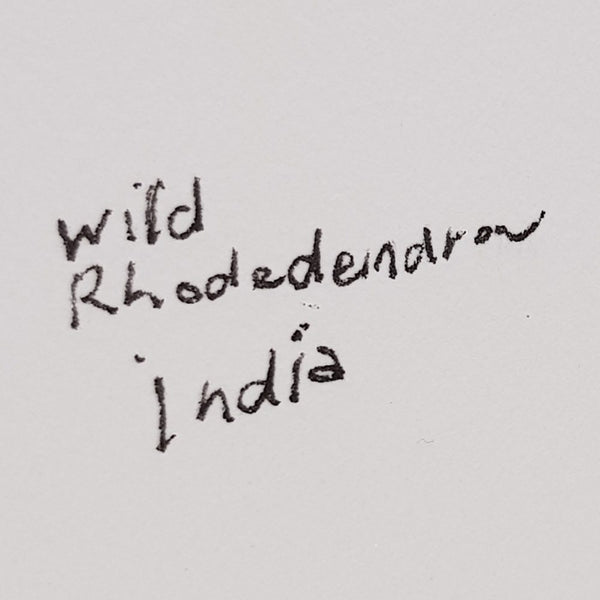 wild
Rhodedendron
india